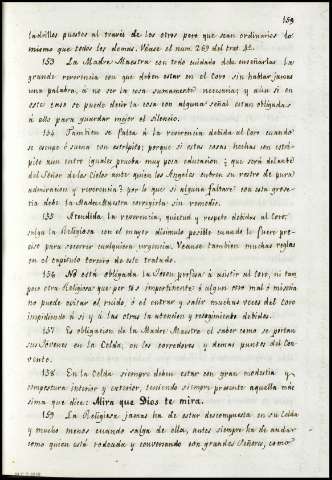 159
ladrillos puestos al través de los otros pero que sean ordinarios lo
mismo que todos los demas. Véase el num. 269 del trat. 3º.
153 La Madre Maestra con todo cuidado debe enseñarlas la
grande reverencia con que deben estar en el Coro sin hablar jamas
una palabra, á no ser la cosa sumamente necesaria; y aún si en
este caso se puede decir la cosa con alguna señal estan obligadas
á ello para guardar mejor el silencio.
154 Tambien se falta á la reverencia debida al Coro cuando
se escupe ó suena con estrépito; porque si estas cosas hechas con estré-
pito aun entre iguales prueba muy poca educacion, ¿que será delante
del Señor de los Cielos ante quien los Angeles cubren su rostro de pura
admiracion y reverencia? por lo que si alguna faltare con esta grose-
ria debe la Madre Maestra corregirla sin remedio.
155 Atendida la reverencia, quietud y respeto debidos al Coro
salga la Religiosa con el mayor disimulo posible cuando le fuere pre-
ciso para socorrer cualquiera urgencia. Veanse tambien muchas reglas
en el capitulo tercero de este tratado.
156 No está obligada la Joven profesa á asistir al Coro, ni tam-
poco otra Religiosa que por tós impertinente ó algun otro mal ó miseria
no puede evitar el ruido ó el entrar y salir muchas veces del Coro
impidiendo á sí y á las otras la atencion y recogimiento debidos.
157 Es obligacion de la Madre Maestra el saber como se portan
sus Jóvenes en la Celda, en los corredores y demas puntos del Con-
vento.
158 En la Celda siempre deben estar con gran modestia y
compostura interior y exterior, teniendo siempre presente aquella má-
xima que dice: Mira que Dios te mira.
159 La Religiosa jamas ha de estar descompuesta en su Celda
y mucho menos cuando salga de ella, antes siempre ha de andar
como quien está rodeada y conversando con grandes Señores, como